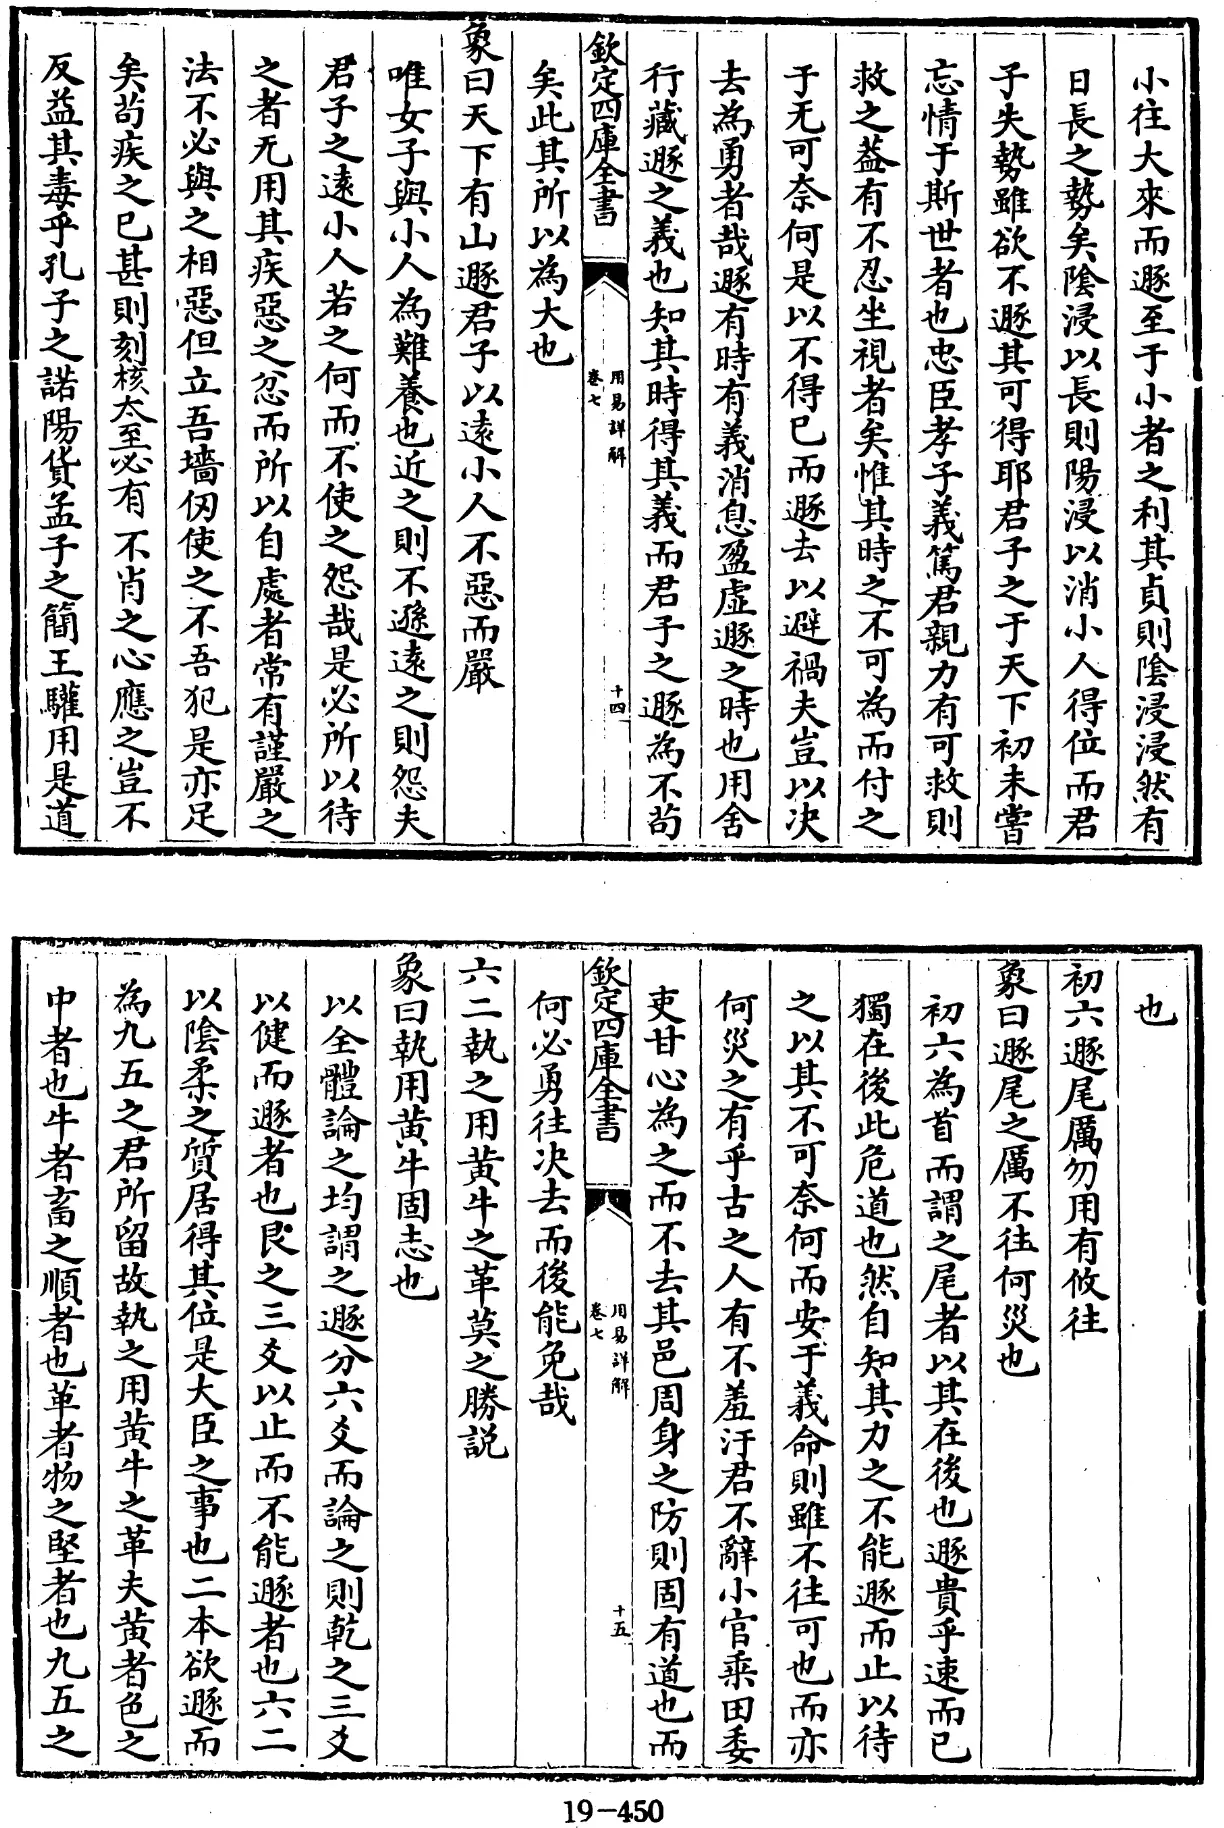 小往大來而遯至于小者之利其貞則陰浸浸然有
日長之勢矣陰浸以長則陽浸以消小人得位而君
子失勢雖欲不遯其可得耶君子之于天下初未嘗
忘情于斯世者也忠臣孝子義篤君親力有可救則
救之葢有不忍坐視者矣惟其時之不可為而付之
于无可奈何是以不得已而遯去以避禍夫豈以決
去為勇者哉遯有時有義消息盈虛遯之時也用舍
行藏遯之義也知其時得其義而君子之遯為不茍
欽定四庫全書
用易詳解
卷七
十四
矣此其所以為大也
象曰天下有山遯君子以逺小人不惡而嚴
唯女子與小人為難養也近之則不遜逺之則怨夫
君子之逺小人若之何而不使之怨哉是必所以待
之者无用其疾惡之忿而所以自處者常有謹嚴之
法不必與之相惡但立吾墻仞使之不吾犯是亦足
矣茍疾之已甚則刻核太至必有不肖之心應之豈不
反益其毒乎孔子之諾陽貨孟子之簡王驩用是道
也
初六遯尾厲勿用有攸往
象曰遯尾之厲不往何災也
初六為首而謂之尾者以其在後也遯貴乎速而已
獨在後此危道也然自知其力之不能遯而止以待
之以其不可奈何而安于義命則雖不往可也而亦
何災之有乎古之人有不羞汙君不辭小官乘田委
吏甘心為之而不去其邑周身之防則固有道也而
欽定四庫全書
用易詳解
卷七
十五
何必勇往決去而後能免哉
六二執之用黃牛之革莫之勝説
象曰執用黃牛固志也
以全體論之均謂之遯分六爻而論之則乾之三爻
以健而遯者也艮之三爻以止而不能遯者也六二
以陰柔之質居得其位是大臣之事也二本欲遯而
為九五之君所留故執之用黃牛之革夫黃者色之
中者也牛者畜之順者也革者物之堅者也九五之
19-450